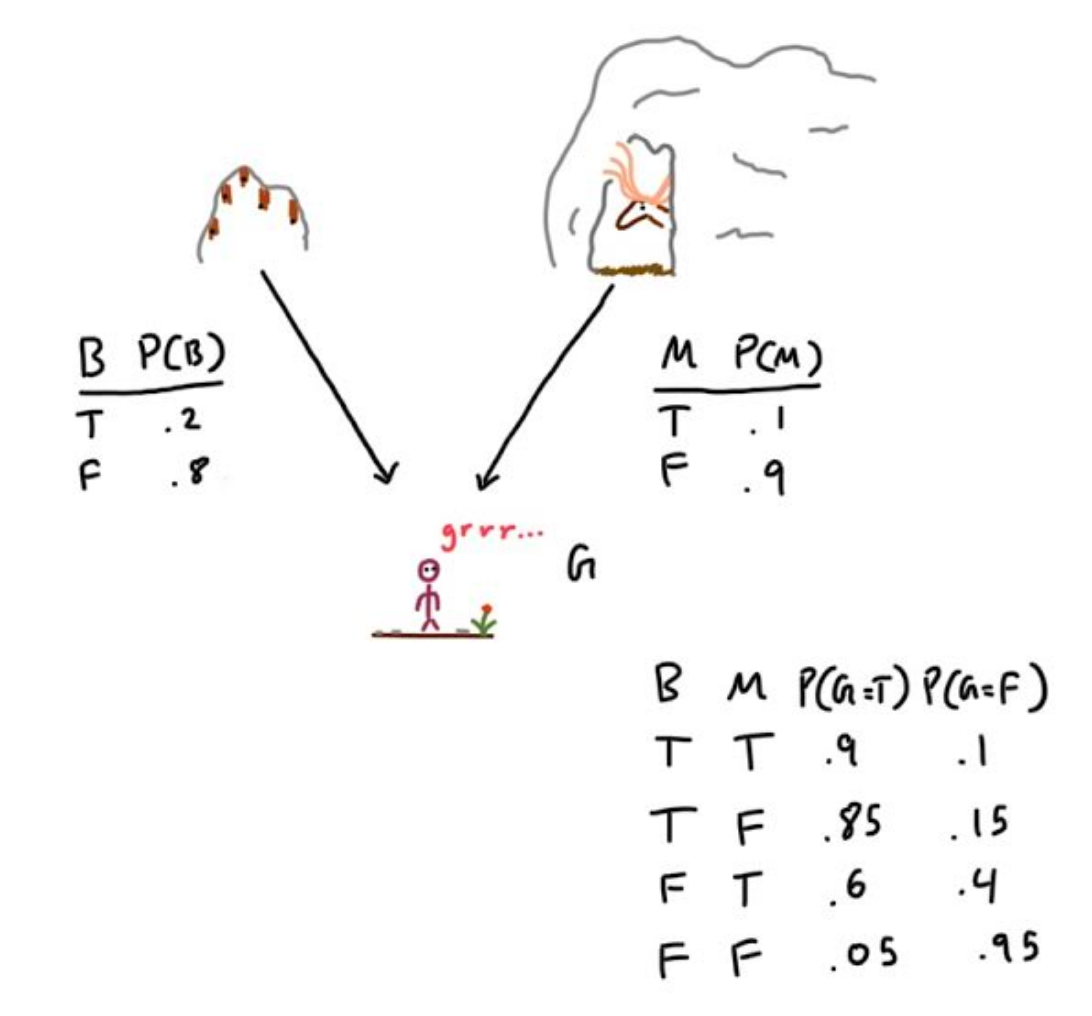 B P(B)
T .2
F .8
M P(M)
T .1
F .9
grrr...
G
B M P(G=T) P(G=F)
T T .9 .1
T F .85 .15
F T .6 .4
F F .05 .95